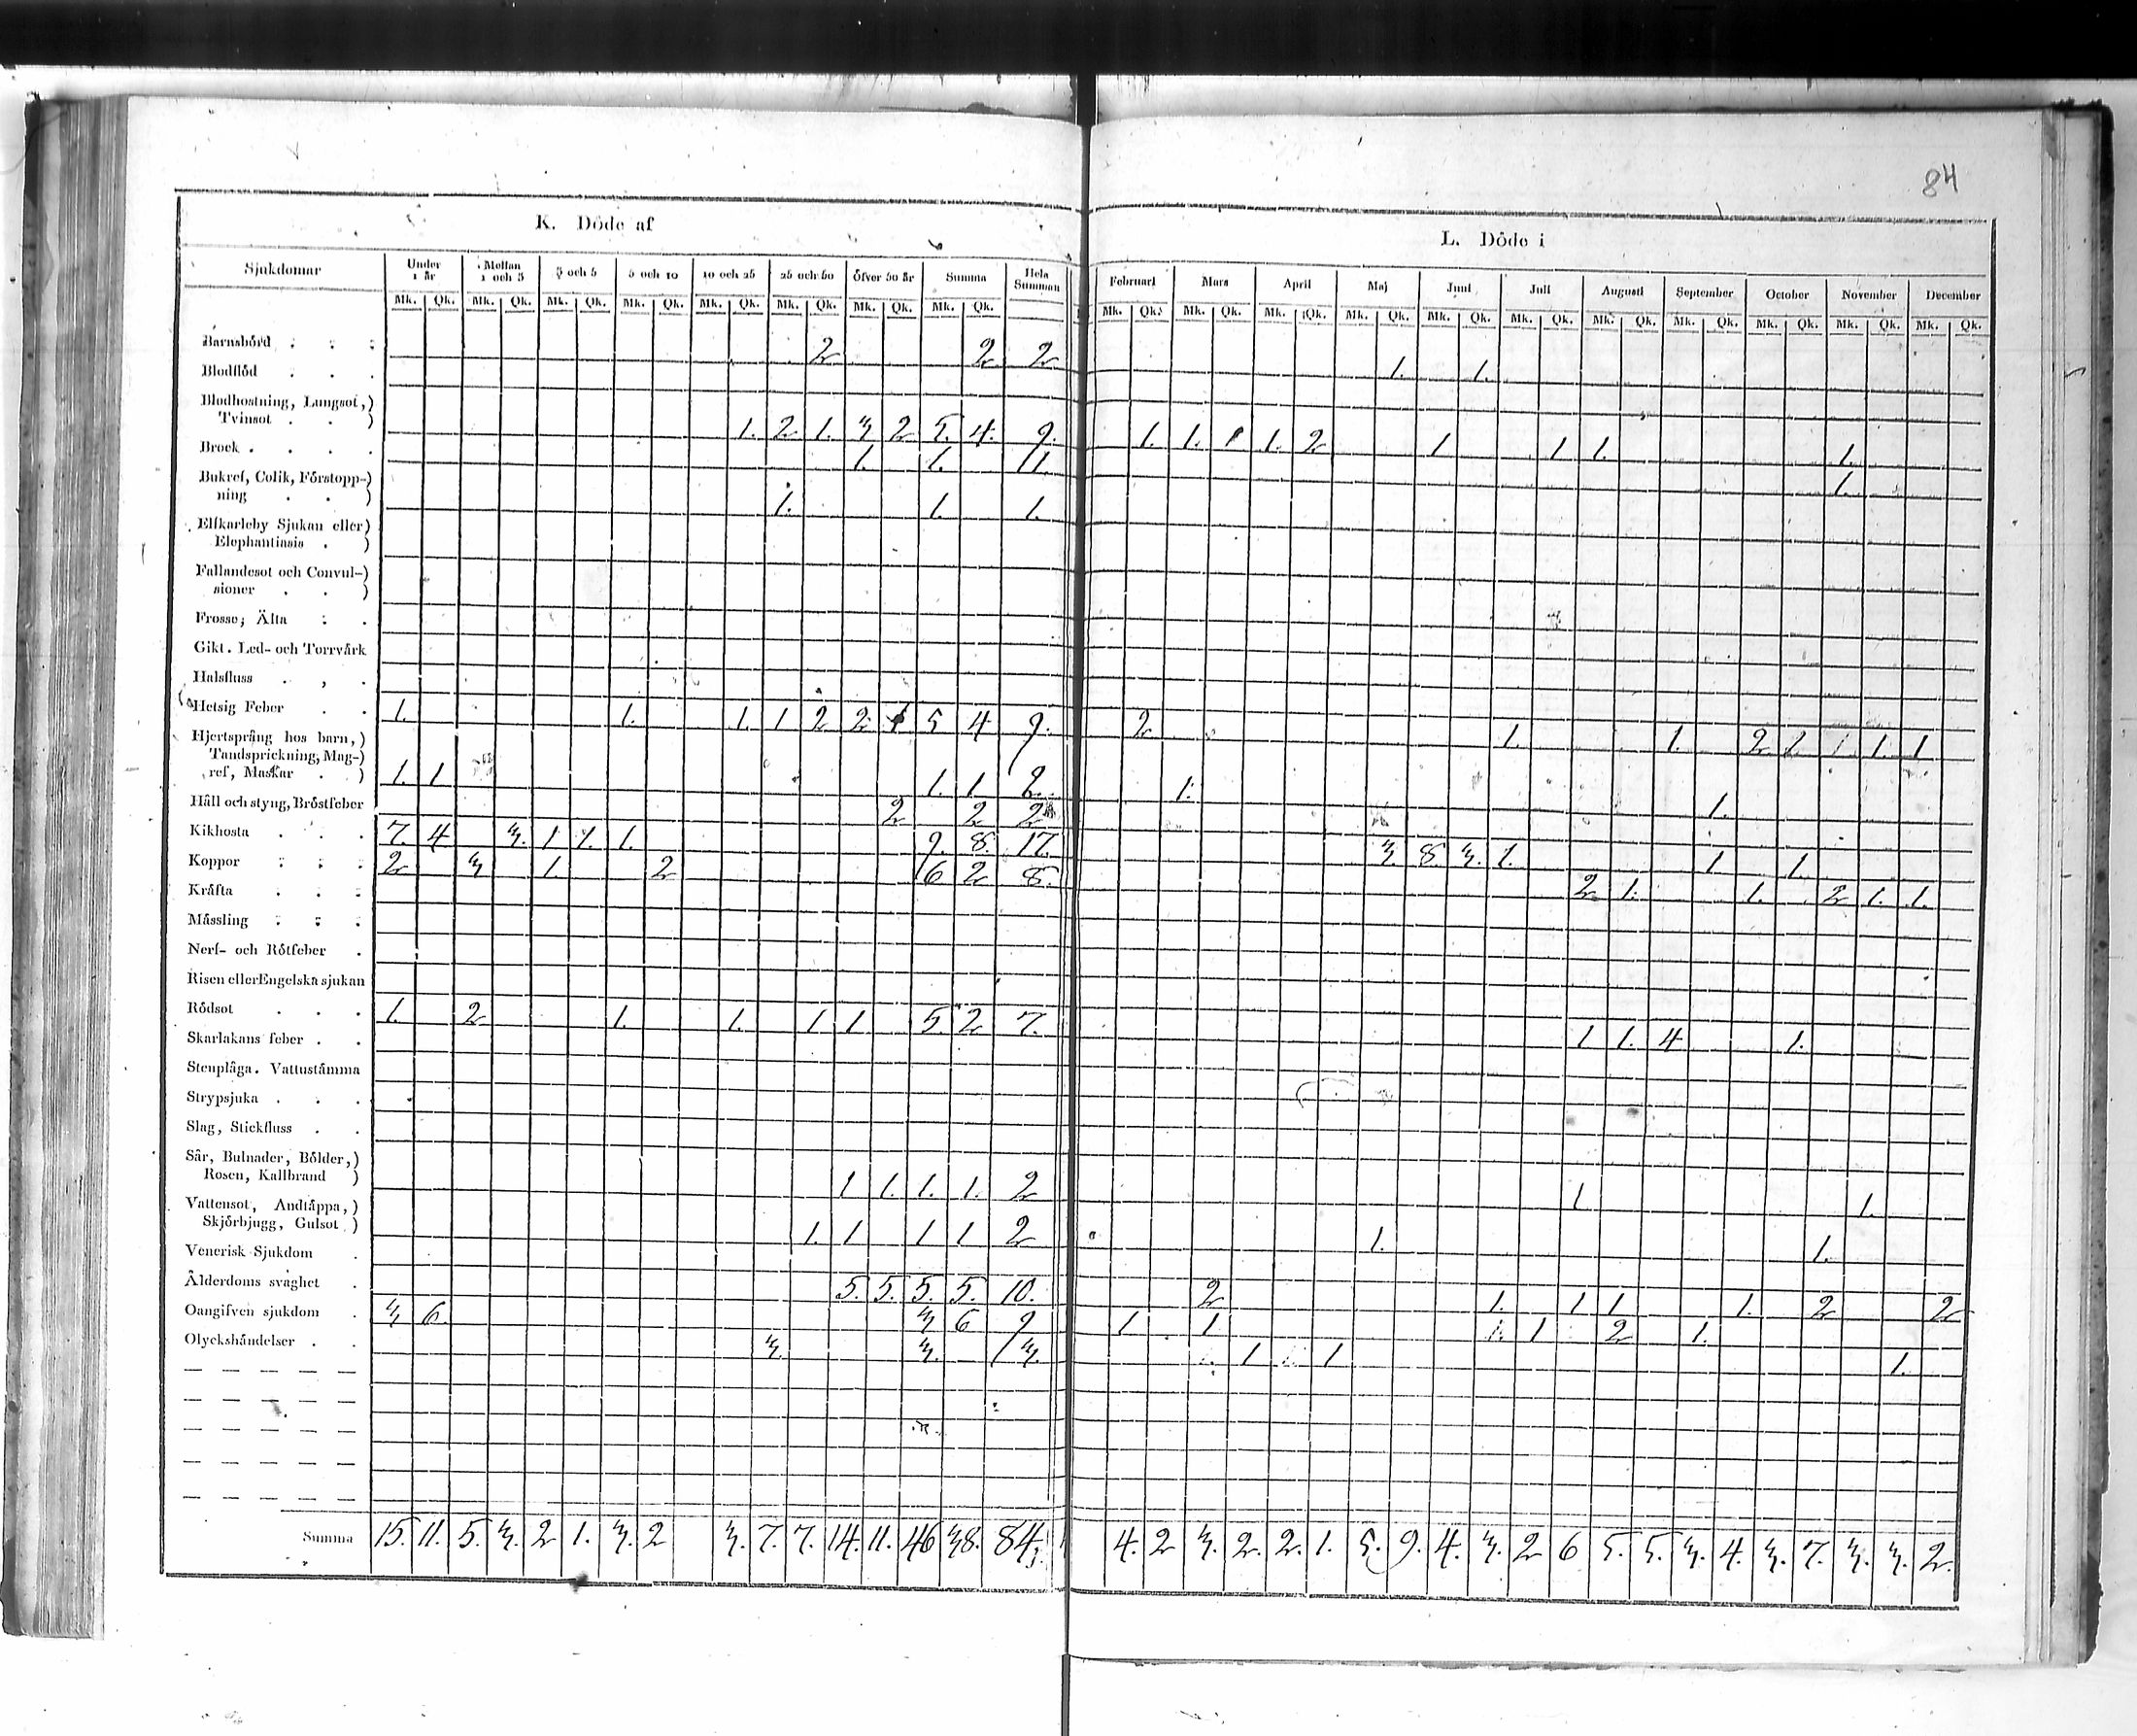 84
K. Döde af
Sjukdomar Under 1 år Mellan 1 och 3 3 och 5 5 och 10 10 och 25 25 och 50 öfver 50 år Summa Hela Summan
Mk. Qk. Mk. Qk. Mk. Qk. Mk. Qk. Mk. Qk. Mk. Qk. Mk. Qk. Mk. Qk.
Barnsbörd 2 2 2
Blodflöd
Blodhostning, Lungsot,)
Tvinsot ) 1. 2 1. 3 2 5. 4. 9.
Brock 1. 1. 1.
Bukref, Colik, Förstopp-)
ning ) 1. 1. 1.
Elfkarleby Sjukan eller)
Elephantiasis )
Fallandesot och Convul-)
sioner )
Frossa; Älta
Gikt. Led- och Torrvärk
Halsfluss
Hetsig Feber 1. 1. 1. 1 2 2 1 5 4 9.
Hjertsprång hos barn,)
Tandsprickning, Mag-)
ref, Maskar ) 1. 1 1. 1 2.
Håll och styng, Bröstfeber 2 2 2
Kikhosta 7. 4 3. 1 1. 1. 9. 8. 17.
Koppor 2 3 1. 2 6 2 8.
Kräfta
Mässling
Nerf- och Rötfeber
Risen eller Engelska sjukan
Rödsot 1. 2 1. 1. 1 1 5 2 7.
Skarlakans feber
Stenplåga. Vattustämma
Strypsjuka
Slag, Stickfluss
Sår, Bulnader, Bölder,)
Rosen, Kallbrand ) 1 1. 1. 1. 2
Vattensot, Andtäppa,)
Skjörbjugg, Gulsot ) 1. 1 1 1 2
Venerisk Sjukdom
Ålderdoms svaghet 5. 5. 5. 5. 10.
Oangifven sjukdom 3 6. 3 6 9
Olyckshändelser 3. 3. 3.
Summa 15. 11. 5. 3. 2 1. 3. 2 3. 7. 7. 14. 11. 46 38. 84.
L. Döde i
Februari Mars April Maj Juni Juli Augusti September October November December
Mk. Qk. Mk. Qk. Mk. Qk. Mk. Qk. Mk. Qk. Mk. Qk. Mk. Qk. Mk. Qk. Mk. Qk. Mk. Qk. Mk. Qk.
1. 1.
1. 1. 1 1. 2 1 1 1. 1.
1.
2 1. 1. 2 1. 1. 1. 1
1. 1.
3. 8. 3. 1. 1. 1.
2 1. 1. 2 1. 1.
1 1. 4 1.
1 1.
1. 1.
2 1. 1 1 1. 2 2
1 1 1. 1 2 1.
1 1 1.
4. 2 3. 2. 2. 1. 5. 9. 4. 3. 2 6 5. 5. 3. 4. 3. 7. 3. 3. 2.